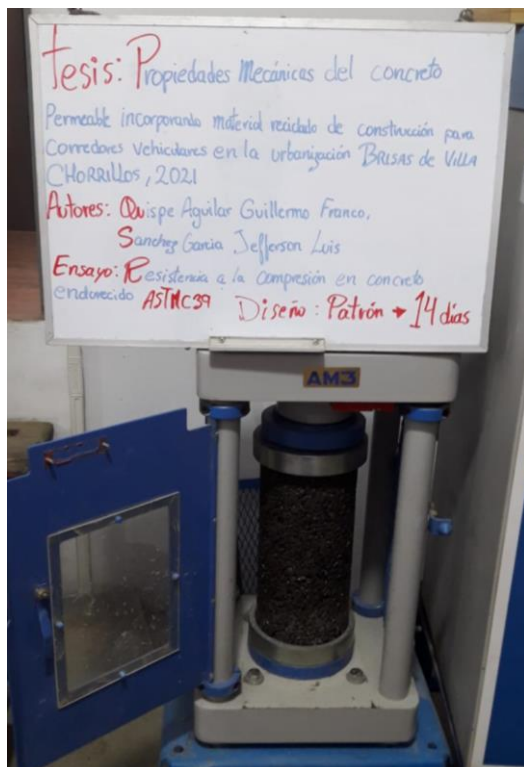 Tesis: Propiedades Mecánicas del concreto
Permeable incorporando material reciclado de construcción para
corredores vehiculares en la urbanización BRISAS de VILLA
CHORRILLOS, 2021
Autores: Quispe Aguilar Guillermo Franco,
Sanchez Garcia Jefferson Luis
Ensayo: Resistencia a la compresión en concreto
endurecido ASTMC39 Diseño: Patrón → 14 días
AM3